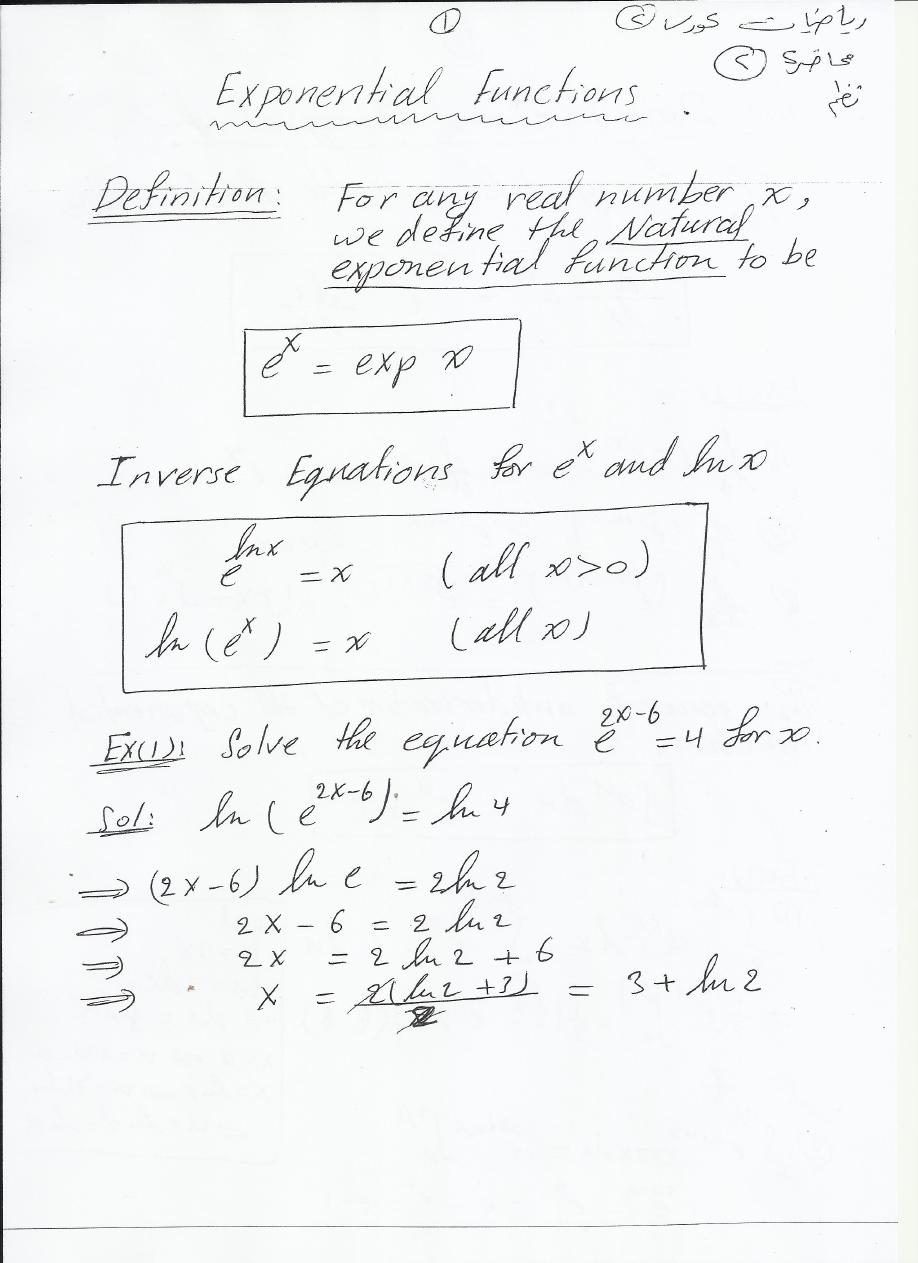 ①
رياضيات كورس ②
محاضرة ②
Exponential Functions .
Definition: For any real number x,
we define the Natural
exponential function to be
e^x = exp x
Inverse Equations for e^x and ln x
e^{ln x} = x (all x>0)
ln (e^x) = x (all x)
Ex(1): Solve the equation e^{2x-6} = 4 for x.
Sol: ln (e^{2x-6}) = ln 4
⇒ (2x-6) ln e = 2 ln 2
⇒ 2x - 6 = 2 ln 2
⇒ 2x = 2 ln 2 + 6
⇒ x = 2(ln 2 + 3)/2 = 3 + ln 2